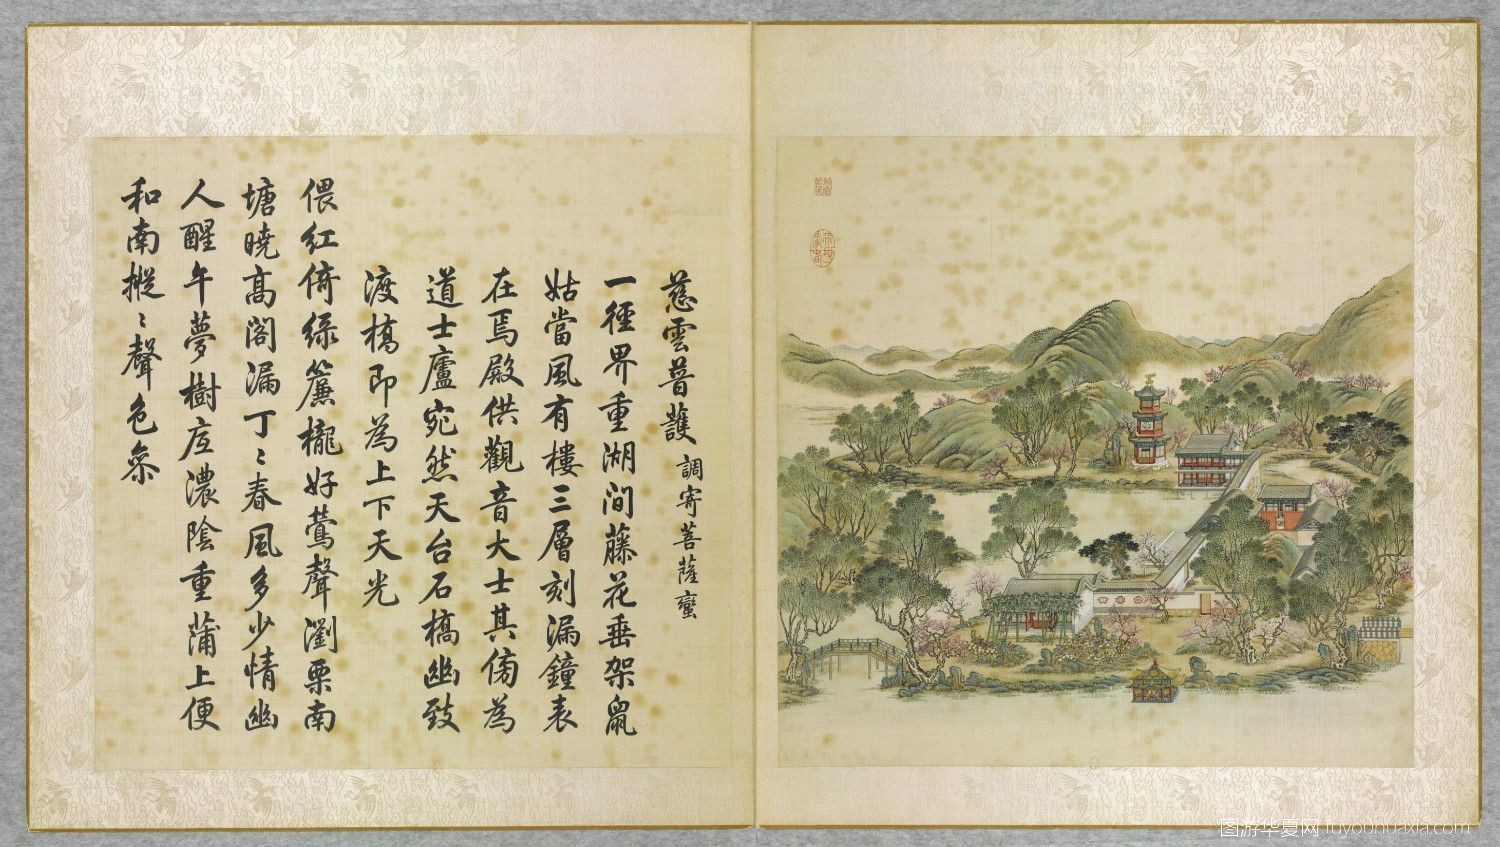 慈雲普護 調寄菩薩蠻
一徑界重湖間藤花垂架鼠
姑當風有樓三層刻漏鐘表
在焉殿供觀音大士其傍為
道士廬宛然天台石橋幽致
渡橋即為上下天光
偎紅倚綠簾櫳好鶯聲瀏栗南
塘曉高閣漏丁〻春風多少情幽
人醒午夢樹底濃陰重蒲上便
和南摐〻聲色參
图游华夏网 tuyouhuaxia.com